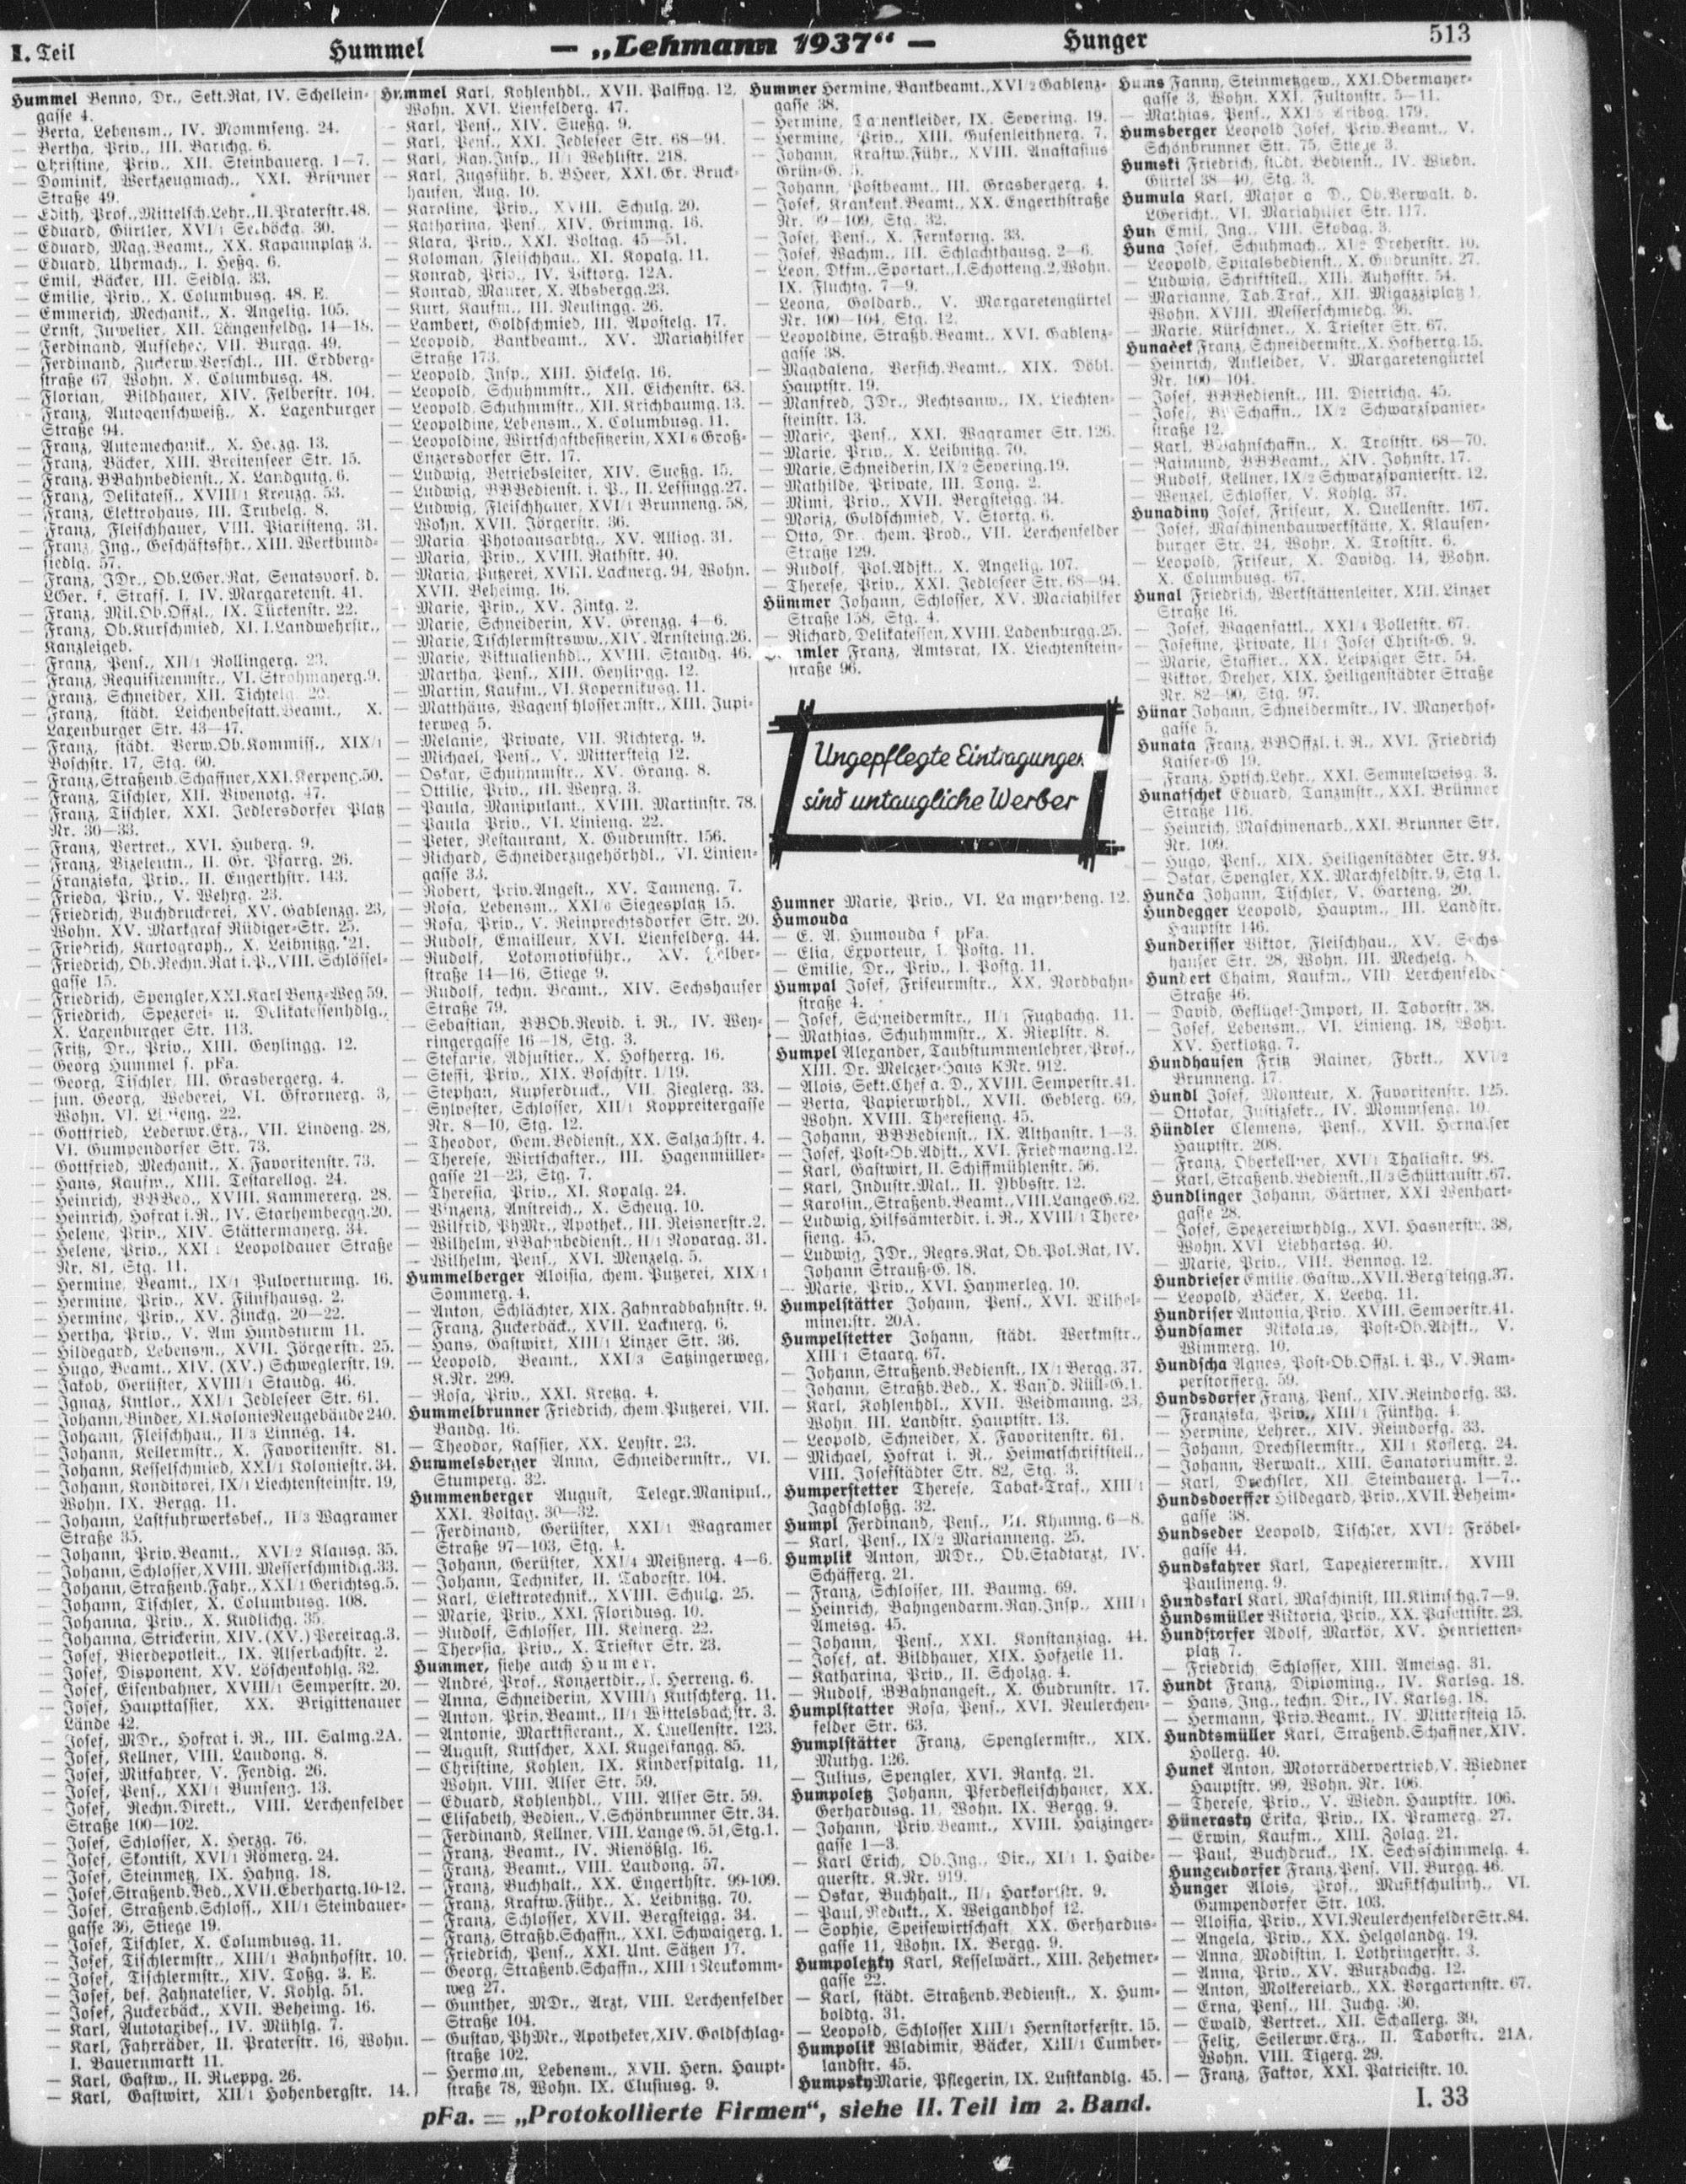 I. Teil
Hummel
— „Lehmann 1937“ —
Hunger
513
Hummel Benno, Dr., Sekt.Rat, IV. Schellein-
gasse 4.
— Berta, Lebensm., IV. Mommseng. 24.
— Bertha, Priv., III. Barichg. 6.
— Christine, Priv., XII. Steinbauerg. 1—7.
— Dominik, Werkzeugmach., XXI. Brünner
Straße 49.
— Edith, Prof., Mittelsch.Lehr., II. Praterstr. 48.
— Eduard, Gürtler, XVI/1 Seeböckg. 30.
— Eduard, Mag.Beamt., XX. Kapaunplatz 3.
— Eduard, Uhrmach., I. Heßg. 6.
— Emil, Bäcker, III. Seidlg. 33.
— Emilie, Priv., X. Columbusg. 48. E.
— Emmerich, Mechanik., X. Angelig. 105.
— Ernst, Juwelier, XII. Längenfeldg. 14—18.
— Ferdinand, Aufseher, VII. Burgg. 49.
— Ferdinand, Zuckerw.Verschl., III. Erdberg-
straße 67, Wohn. X. Columbusg. 48.
— Florian, Bildhauer, XIV. Felberstr. 104.
— Franz, Autogenschweiß., X. Laxenburger
Straße 94.
— Franz, Automechanik., X. Herzg. 13.
— Franz, Bäcker, XIII. Breitenseer Str. 15.
— Franz, BBahnbedienst., X. Landgutg. 6.
— Franz, Delikatess., XVIII/1 Kreuzg. 53.
— Franz, Elektrohaus, III. Trubelg. 8.
— Franz, Fleischhauer, VIII. Piaristeng. 31.
— Franz, Ing., Geschäftsfhr., XIII. Werkbund-
siedlg. 57.
— Franz, JDr., Ob.LGer.Rat, Senatsvors. d.
LGer. f. Strafs. I, IV. Margaretenst. 41.
— Franz, Mil.Ob.Offzl., IX. Türkenstr. 22.
— Franz, Ob.Kurschmied, XI. I.Landwehrstr.,
Kanzleigeb.
— Franz, Pens., XII/1 Rollingerg. 23.
— Franz, Requisitenmstr., VI. Strohmayerg. 9.
— Franz, Schneider, XII. Tichtelg. 20.
— Franz, städt. Leichenbestatt.Beamt., X.
Laxenburger Str. 43—47.
— Franz, städt. Verw.Ob.Kommiss., XIX/1
Boschstr. 17, Stg. 60.
— Franz, Straßenb.Schaffner, XXI. Kerpeng. 50.
— Franz, Tischler, XII. Vivenotg. 47.
— Franz, Tischler, XXI. Jedlersdorfer Platz
Nr. 30—33.
— Franz, Vertret., XVI. Huberg. 9.
— Franz, Vizeleutn., II. Gr. Pfarrg. 26.
— Franziska, Priv., II. Engerthstr. 143.
— Frieda, Priv., V. Wehrg. 23.
— Friedrich, Buchdruckerei, XV. Gablenzg. 23,
Wohn. XV. Markgraf Rüdiger-Str. 25.
— Friedrich, Kartograph., X. Leibnitzg. 21.
— Friedrich, Ob.Rechn.Rat i.P., VIII. Schlössel-
gasse 15.
— Friedrich, Spengler, XXI. Karl Benz-Weg 59.
— Friedrich, Spezerei- u. Delikatessenhdlg.,
X. Laxenburger Str. 113.
— Fritz, Dr., Priv., XIII. Geylingg. 12.
— Georg Hummel s. pFa.
— Georg, Tischler, III. Grasbergerg. 4.
— jun. Georg, Weberei, VI. Gfrornerg. 3,
Wohn. VI. Linieng. 22.
— Gottfried, Lederwr.Erz., VII. Lindeng. 28,
VI. Gumpendorfer Str. 73.
— Gottfried, Mechanik., X. Favoritenstr. 73.
— Hans, Kaufm., XIII. Testarellog. 24.
— Heinrich, BBBed., XVIII. Kammererg. 28.
— Heinrich, Hofrat i.R., IV. Starhembergg. 20.
— Helene, Priv., XIV. Stättermayerg. 34.
— Helene, Priv., XXI/1 Leopoldauer Straße
Nr. 81, Stg. 11.
— Hermine, Beamt., IX/1 Pulverturmg. 16.
— Hermine, Priv., XV. Fünfhausg. 2.
— Hermine, Priv., XV. Zinckg. 20—22.
— Hertha, Priv., V. Am Hundsturm 11.
— Hildegard, Lebensm., XVII. Jörgerstr. 25.
— Hugo, Beamt., XIV. (XV.) Schweglerstr. 19.
— Jakob, Gerüster, XVIII/1 Staudg. 46.
— Ignaz, Kntlor., XXI/1 Jedleseer Str. 61.
— Johann, Binder, XI. Kolonie Neugebäude 240.
— Johann, Fleischhau., II/3 Linnég. 14.
— Johann, Kellermstr., X. Favoritenstr. 81.
— Johann, Kesselschmied, XXI/1 Koloniestr. 34.
— Johann, Konditorei, IX/1 Liechtensteinstr. 19,
Wohn. IX. Bergg. 11.
— Johann, Lastfuhrwerksbes., II/3 Wagramer
Straße 35.
— Johann, Priv.Beamt., XVI/2 Klausg. 35.
— Johann, Schlosser, XVIII. Messerschmidtg. 33.
— Johann, Straßenb.Fahr., XXI/1 Gerichtsg. 5.
— Johann, Tischler, X. Columbusg. 108.
— Johanna, Priv., X. Kudlichg. 35.
— Johanna, Strickerin, XIV. (XV.) Pereirag. 3.
— Josef, Bierdepotleit., IX. Alserbachstr. 2.
— Josef, Disponent, XV. Löschenkohlg. 32.
— Josef, Eisenbahner, XVIII/1 Semperstr. 20.
— Josef, Hauptkassier, XX. Brigittenauer
Lände 42.
— Josef, MDr., Hofrat i. R., III. Salmg. 2A.
— Josef, Kellner, VIII. Laudong. 8.
— Josef, Mitfahrer, V. Fendig. 26.
— Josef, Pens., XXI/1 Bunseng. 13.
— Josef, Rechn.Direkt., VIII. Lerchenfelder
Straße 100—102.
— Josef, Schlosser, X. Herzg. 76.
— Josef, Skontist, XVI/1 Römerg. 24.
— Josef, Steinmetz, IX. Hahng. 18.
— Josef, Straßenb.Bed., XVII. Eberhartg. 10-12.
— Josef, Straßenb.Schloss., XII/1 Steinbauer-
gasse 36, Stiege 19.
— Josef, Tischler, X. Columbusg. 11.
— Josef, Tischlermstr., XIII/1 Bahnhofstr. 10.
— Josef, Tischlermstr., XIV. Toßg. 3. E.
— Josef, bef. Zahnatelier, V. Kohlg. 51.
— Josef, Zuckerbäck., XVII. Beheimg. 16.
— Karl, Autotaxibes., IV. Mühlg. 7.
— Karl, Fahrräder, II. Praterstr. 16, Wohn.
I. Bauernmarkt 11.
— Karl, Gastw., II. Rueppg. 26.
— Karl, Gastwirt, XII/1 Hohenbergstr. 14.
Hummel Karl, Kohlenhdl., XVII. Palffyg. 12,
Wohn. XVI. Lienfelderg. 47.
— Karl, Pens., XIV. Sueßg. 9.
— Karl, Pens., XXI. Jedleseer Str. 68—94.
— Karl, Ray.Insp., II/1 Wehlistr. 218.
— Karl, Zugsführ. b. BHeer, XXI. Gr. Bruck-
hausen, Aug. 10.
— Karoline, Priv., XVIII. Schulg. 20.
— Katharina, Pens., XIV. Grimmg. 16.
— Klara, Priv., XXI. Voltag. 45—51.
— Koloman, Fleischhau., XI. Kopalg. 11.
— Konrad, Priv., IV. Viktorg. 12A.
— Konrad, Maurer, X. Absbergg. 23.
— Kurt, Kaufm., III. Neulingg. 26.
— Lambert, Goldschmied, III. Apostelg. 17.
— Leopold, Bankbeamt., XV. Mariahilfer
Straße 173.
— Leopold, Insp., XIII. Hickelg. 16.
— Leopold, Schuhmmstr., XII. Eichenstr. 68.
— Leopold, Schuhmmstr., XII. Krichbaumg. 13.
— Leopoldine, Lebensm., X. Columbusg. 11.
— Leopoldine, Wirtschaftbesitzerin, XXI/6 Groß-
Enzersdorfer Str. 17.
— Ludwig, Betriebsleiter, XIV. Sueßg. 15.
— Ludwig, BBBedienst. i. P., II. Lessingg. 27.
— Ludwig, Fleischhauer, XVI/1 Brunneng. 58,
Wohn. XVII. Jörgerstr. 36.
— Maria Photoausarbtg., XV. Alliog. 31.
— Maria, Priv., XVIII. Rathstr. 40.
— Maria, Putzerei, XVIII. Lacknerg. 94, Wohn.
XVII. Beheimg. 16.
— Marie, Priv., XV. Zinkg. 2.
— Marie, Schneiderin, XV. Grenzg. 4—6.
— Marie, Tischlermstrsww., XIV. Arnsteing. 26.
— Marie, Viktualienhdl., XVIII. Staudg. 46.
— Martha, Pens., XIII. Geylingg. 12.
— Martin, Kaufm., VI. Kopernikusg. 11.
— Matthäus, Wagenschlossermstr., XIII. Jupi-
terweg 5.
— Melanie, Private, VII. Richterg. 9.
— Michael, Pens., V. Mittersteig 12.
— Oskar, Schuhmmstr., XV. Grang. 8.
— Ottilie, Priv., III. Weyrg. 3.
— Paula, Manipulant., XVIII. Martinstr. 78.
— Paula Priv., VI. Linieng. 22.
— Peter, Restaurant, X. Gudrunstr. 156.
— Richard, Schneiderzugehörhdl., VI. Linien-
gasse 33.
— Robert, Priv.Angest., XV. Tanneng. 7.
— Rosa, Lebensm., XXI/6 Siegesplatz 15.
— Rosa, Priv., V. Reinprechtsdorfer Str. 20.
— Rudolf, Emailleur, XVI. Lienfelderg. 44.
— Rudolf, Lokomotivführ., XV. Felber-
straße 14—16, Stiege 9.
— Rudolf, techn. Beamt., XIV. Sechshauser
Straße 79.
— Sebastian, BBOb.Revid. i. R., IV. Wey-
ringergasse 16—18, Stg. 3.
— Stefanie, Adjustier., X. Hofherrg. 16.
— Steffi, Priv., XIX. Boschstr. 1/19.
— Stephan, Kupferdruck., VII. Zieglerg. 33.
— Sylvester, Schlosser, XII/1 Koppreitergasse
Nr. 8—10, Stg. 12.
— Theodor, Gem.Bedienst., XX. Salzachstr. 4.
— Therese, Wirtschafter., III. Hagenmüller-
gasse 21—23, Stg. 7.
— Theresia, Priv., XI. Kopalg. 24.
— Vinzenz, Anstreich., X. Scheug. 10.
— Wilfrid, PhMr., Apothek., III. Reisnerstr. 2.
— Wilhelm, BBahnbedienst., II/1 Novarag. 31.
— Wilhelm, Pens., XVI. Menzelg. 5.
Hummelberger Aloisia, chem. Putzerei, XIX/1
Sommerg. 4.
— Anton, Schlächter, XIX. Zahnradbahnstr. 9.
— Franz, Zuckerbäck., XVII. Lacknerg. 6.
— Hans, Gastwirt, XIII/1 Linzer Str. 36.
— Leopold, Beamt., XXI/3 Satzingerweg,
K.Nr. 299.
— Rosa, Priv., XXI. Kretzg. 4.
Hummelbrunner Friedrich, chem.Putzerei, VII.
Bandg. 16.
— Theodor, Kassier, XX. Leystr. 23.
Hummelsberger Anna, Schneidermstr., VI.
Stumperg. 32.
Hummenberger August, Telegr.Manipul.,
XXI. Voltag. 30—32.
— Ferdinand, Gerüster, XXI/1 Wagramer
Straße 97—103, Stg. 4.
— Johann, Gerüster, XXI/4 Meißnerg. 4—6.
— Johann, Techniker, II. Taborstr. 104.
— Karl, Elektrotechnik., XVIII. Schulg. 25.
— Marie, Priv., XXI. Floridusg. 10.
— Rudolf, Schlosser, III. Keinerg. 22.
— Theresia, Priv., X. Triester Str. 23.
Hummer, siehe auch Humer.
— André, Prof., Konzertdir., I. Herreng. 6.
— Anna, Schneiderin, XVIII/1 Kutschkerg. 11.
— Anton, Priv.Beamt., II/1 Wittelsbachstr. 3.
— Antonie, Marktfierant., X. Quellenstr. 123.
— August, Kutscher, XXI. Kugelfangg. 85.
— Christine, Kohlen, IX. Kinderspitalg. 11,
Wohn. VIII. Alser Str. 59.
— Eduard, Kohlenhdl., VIII. Alser Str. 59.
— Elisabeth, Bedien., V. Schönbrunner Str. 34.
— Ferdinand, Kellner, VIII. Lange G. 51, Stg. 1.
— Franz, Beamt., IV. Rienößlg. 16.
— Franz, Beamt., VIII. Laudong. 57.
— Franz, Buchhalt., XX. Engerthstr. 99-109.
— Franz, Kraftw.Führ., X. Leibnitzg. 70.
— Franz, Schlosser, XVII. Bergsteigg. 34.
— Franz, Straßb.Schaffn., XXI. Schwaigerg. 1.
— Friedrich, Pens., XXI. Unt. Sätzen 17.
— Georg, Straßenb.Schaffn., XIII/1 Neukomm-
weg 27.
— Gunther, MDr., Arzt, VIII. Lerchenfelder
Straße 104.
— Gustav, PhMr., Apotheker, XIV. Goldschlag-
straße 102.
— Hermann, Lebensm., XVII. Hern. Haupt-
straße 78, Wohn. IX. Clusiusg. 9.
Hummer Hermine, Bankbeamt., XVI/2 Gablenz-
gasse 38.
— Hermine, Damenkleider, IX. Severing. 19.
— Hermine, Priv., XIII. Gusenleithnerg. 7.
— Johann, Kraftw.Führ., XVIII. Anastasius
Grün-G. 5.
— Johann, Postbeamt., III. Grasbergerg. 4.
— Josef, Krankenk.Beamt., XX. Engerthstraße
Nr. 99—109, Stg. 32.
— Josef, Pens., X. Fernkorng. 33.
— Josef, Wachm., III. Schlachthausg. 2—6.
— Leon, Dkfm., Sportart., I. Schotteng. 2, Wohn.
IX. Fluchtg. 7—9.
— Leona, Goldarb., V. Margaretengürtel
Nr. 100—104, Stg. 12.
— Leopoldine, Straßb.Beamt., XVI. Gablenz-
gasse 38.
— Magdalena, Versich.Beamt., XIX. Döbl.
Hauptstr. 19.
— Manfred, JDr., Rechtsanw., IX. Liechten-
steinstr. 13.
— Marie, Pens., XXI. Wagramer Str. 126.
— Marie, Priv., X. Leibnitzg. 70.
— Marie, Schneiderin, IX/2 Severing. 19.
— Mathilde, Private, III. Tong. 2.
— Mimi, Priv., XVII. Bergsteigg. 34.
— Moriz, Goldschmied, V. Stortg. 6.
— Otto, Dr., chem. Prod., VII. Lerchenfelder
Straße 129.
— Rudolf, Pol.Adjkt., X. Angelig. 107.
— Therese, Priv., XXI. Jedleseer Str. 68—94.
Hümmer Johann, Schlosser, XV. Mariahilfer
Straße 158, Stg. 4.
— Richard, Delikatessen, XVIII. Ladenburgg. 25.
Hummler Franz, Amtsrat, IX. Liechtenstein-
straße 96.
Ungepflegte Eintragungen
sind untaugliche Werber
Humner Marie, Priv., VI. Laimgrubeng. 12.
Humouda
— E. A. Humouda s. pFa.
— Elia, Exporteur, I. Postg. 11.
— Emilie, Dr., Priv., I. Postg. 11.
Humpal Josef, Friseurmstr., XX. Nordbahn-
straße 4.
— Josef, Schneidermstr., II/1 Fugbachg. 11.
— Mathias, Schuhmmstr., X. Rieplstr. 8.
Humpel Alexander, Taubstummenlehrer, Prof.,
XIII. Dr. Melczer-Haus KNr. 912.
— Alois, Sekt.Chef a. D., XVIII. Semperstr. 41.
— Berta, Papierwrhdl., XVII. Geblerg. 69,
Wohn. XVIII. Theresieng. 45.
— Johann, BBBedienst., IX. Althanstr. 1—3.
— Josef, Post-Ob.Adjkt., XVI. Friedmanng. 12.
— Karl, Gastwirt, II. Schiffmühlenstr. 56.
— Karl, Industr.Mal., II. Ybbsstr. 12.
— Karolin., Straßenb.Beamt., VIII. Lange G. 62.
— Ludwig, Hilfsämterdir. i. R., XVIII/1 There-
sieng. 45.
— Ludwig, JDr., Regrs.Rat, Ob.Pol.Rat, IV.
Johann Strauß-G. 18.
— Marie, Priv., XVI. Haymerleg. 10.
Humpelstätter Johann, Pens., XVI. Wilhel-
minenstr. 20A.
Humpelstetter Johann, städt. Werkmstr.,
XIII/1 Staarg. 67.
— Johann, Straßenb.Bedienst., IX/1 Bergg. 37.
— Johann, Straßb.Bed., X. Van d. Nüll-G. 1.
— Karl, Kohlenhdl., XVII. Weidmanng. 23,
Wohn. III. Landstr. Hauptstr. 13.
— Leopold, Schneider, X. Favoritenstr. 61.
— Michael, Hofrat i. R., Heimatschriftstell.,
VIII. Josefstädter Str. 82, Stg. 3.
Humperstetter Therese, Tabak-Traf., XIII/1
Jagdschloßg. 32.
Humpl Ferdinand, Pens., III. Khunng. 6—8.
— Karl, Pens., IX/2 Marianneng. 25.
Humplik Anton, MDr., Ob.Stadtarzt, IV.
Schäfferg. 21.
— Franz, Schlosser, III. Baumg. 69.
— Heinrich, Bahngendarm.Ray.Insp., XIII/1
Ameisg. 45.
— Johann, Pens., XXI. Konstanziag. 44.
— Josef, ak. Bildhauer, XIX. Hofzeile 11.
— Katharina, Priv., II. Scholzg. 4.
— Rudolf, BBahnangest., X. Gudrunstr. 17.
Humplstatter Rosa, Pens., XVI. Neulerchen-
felder Str. 63.
Humplstätter Franz, Spenglermstr., XIX.
Muthg. 126.
— Julius, Spengler, XVI. Rankg. 21.
Humpoletz Johann, Pferdefleischhauer, XX.
Gerhardusg. 11, Wohn. IX. Bergg. 9.
— Johann, Priv.Beamt., XVIII. Haizinger-
gasse 1—3.
— Karl Erich, Ob.Ing., Dir., XI/1 1. Haide-
querstr. K.Nr. 919.
— Oskar, Buchhalt., II/1 Harkortstr. 9.
— Paul, Redakt., X. Weigandhof 12.
— Sophie, Speisewirtschaft XX. Gerhardus-
gasse 11, Wohn. IX. Bergg. 9.
Humpoletzky Karl, Kesselwärt., XIII. Zehetner-
gasse 22.
— Karl, städt. Straßenb.Bedienst., X. Hum-
boldtg. 31.
— Leopold, Schlosser XIII/1 Hernstorferstr. 15.
Humpolik Wladimir, Bäcker, XIII/1 Cumber-
landstr. 45.
Humpsky Marie, Pflegerin, IX. Lustkandlg. 45.
Hums Fanny, Steinmetzgew., XXI. Obermayer-
gasse 3, Wohn. XXI. Fultonstr. 5—11.
— Mathias, Pens., XXI/5 Aribog. 179.
Humsberger Leopold Josef, Priv.Beamt., V.
Schönbrunner Str. 75, Stiege 3.
Humski Friedrich, städt. Bedienst., IV. Wiedn.
Gürtel 38—40, Stg. 3.
Humula Karl, Major a. D., Ob.Verwalt. d.
LGericht., VI. Mariahilfer Str. 117.
Hun Emil, Ing., VIII. Skodag. 3.
Huna Josef, Schuhmach., XII/2 Dreherstr. 10.
— Leopold, Spitalsbedienst., X. Gudrunstr. 27.
— Ludwig, Schriftstell., XIII. Auhofstr. 54.
— Marianne, Tab.Traf., XII. Migazziplatz 1,
Wohn. XVIII. Messerschmiedg. 36.
— Marie, Kürschner., X. Triester Str. 67.
Hunaček Franz, Schneidermstr., X. Hofherrg. 15.
— Heinrich, Ankleider, V. Margaretengürtel
Nr. 100—104.
— Josef, BBBedienst., III. Dietrichg. 45.
— Josef, BBSchaffn., IX/2 Schwarzspanier-
straße 12.
— Karl, BBahnschaffn., X. Troststr. 68—70.
— Raimund, BBBeamt., XIV. Johnstr. 17.
— Rudolf, Kellner, IX/2 Schwarzspanierstr. 12.
— Wenzel, Schlosser, V. Kohlg. 37.
Hunadiny Josef, Friseur, X. Quellenstr. 167.
— Josef, Maschinenbauwerkstätte, X. Klausen-
burger Str. 24, Wohn. X. Troststr. 6.
— Leopold, Friseur, X. Davidg. 14, Wohn.
X. Columbusg. 67.
Hunal Friedrich, Werkstättenleiter, XIII. Linzer
Straße 16.
— Josef, Wagensattl., XXI/4 Polletstr. 67.
— Josefine, Private, II/1 Josef Christ-G. 9.
— Marie, Staffier., XX. Leipziger Str. 54.
— Viktor, Dreher, XIX. Heiligenstädter Straße
Nr. 82—90, Stg. 97.
Hünar Johann, Schneidermstr., IV. Mayerhof-
gasse 5.
Hunata Franz, BBOffzl. i. R., XVI. Friedrich
Kaiser-G 19.
— Franz, Hptsch.Lehr., XXI. Semmelweisg. 3.
Hunatschek Eduard, Tanzmstr., XXI. Brünner
Straße 116.
— Heinrich, Maschinenarb., XXI. Brünner Str.
Nr. 109.
— Hugo, Pens., XIX. Heiligenstädter Str. 93.
— Oskar, Spengler, XX. Marchfeldstr. 9, Stg 1.
Hunča Johann, Tischler, V. Garteng. 20.
Hundegger Leopold, Hauptm., III. Landstr.
Hauptstr 146.
Hunderisser Viktor, Fleischhau., XV. Sechs-
hauser Str. 28, Wohn. III. Mechelg. 8.
Hundert Chaim, Kaufm., VIII Lerchenfelder
Straße 46.
— David, Geflügel-Import, II. Taborstr. 38.
— Josef, Lebensm., VI. Linieng. 18, Wohn.
XV. Herklotzg. 7.
Hundhausen Fritz Rainer, Fbrkt., XVI/2
Brunneng. 17.
Hundl Josef, Monteur, X. Favoritenstr. 125.
— Ottokar, Justizsekr., IV. Mommseng. 10.
Hündler Clemens, Pens., XVII. Hernalser
Hauptstr. 208.
— Franz, Oberkellner, XVI/1 Thaliastr. 98.
— Karl, Straßenb.Bedienst., II/3 Schüttaustr. 67.
Hundlinger Johann, Gärtner, XXI Wenhart-
gasse 28.
— Josef, Spezereiwrhdlg., XVI. Hasnerstr. 38,
Wohn. XVI Liebhartsg. 40.
— Marie, Priv., VIII. Bennog. 12.
Hundrieser Emilie, Gastw., XVII. Bergsteigg. 37.
— Leopold, Bäcker, X. Leebg. 11.
Hundriser Antonia, Priv. XVIII. Semperstr. 41.
Hundsamer Nikolaus, Post-Ob.Adjkt., V.
Wimmerg. 10.
Hundscha Agnes, Post-Ob.Offzl. i. P., V. Ram-
perstorfferg. 59.
Hundsdorfer Franz, Pens., XIV. Reindorfg. 33.
— Franziska, Priv., XIII/1 Fünkhg. 4.
— Hermine, Lehrer., XIV. Reindorfg. 33.
— Johann, Drechslermstr., XII/1 Koflerg. 24.
— Johann, Verwalt., XIII. Sanatoriumstr. 2.
— Karl, Drechsler, XII. Steinbauerg. 1—7.
Hundsdoerffer Hildegard, Priv., XVII. Beheim-
gasse 38.
Hundseder Leopold, Tischler, XVI/2 Fröbel-
gasse 44.
Hundskahrer Karl, Tapezierermstr., XVIII
Paulineng. 9.
Hundskarl Karl, Maschinist, III. Klimschg. 7—9.
Hundsmüller Viktoria, Priv., XX. Pasettistr. 23.
Hundstorfer Adolf, Markör, XV. Henrietten-
platz 7.
— Friedrich, Schlosser, XIII. Ameisg. 31.
Hundt Franz, Diploming., IV. Karlsg. 18.
— Hans, Ing., techn. Dir., IV. Karlsg. 18.
— Hermann, Priv.Beamt., IV. Mittersteig 15.
Hundtsmüller Karl, Straßenb.Schaffner, XIV.
Hollerg. 40.
Hunek Anton, Motorrädervertrieb, V. Wiedner
Hauptstr. 99, Wohn. Nr. 106.
— Therese, Priv., V. Wiedn. Hauptstr. 106.
Hünerasky Erika, Priv., IX. Pramerg. 27.
— Erwin, Kaufm., XIII. Zolag. 21.
— Paul, Buchdruck., IX. Sechsschimmelg. 4.
Hungendorfer Franz, Pens. VII. Burgg. 46.
Hunger Alois, Prof., Musikschulinh., VI.
Gumpendorfer Str. 103.
— Aloisia, Priv., XVI. Neulerchenfelder Str. 84.
— Angela, Priv., XX. Helgolandg. 19.
— Anna, Modistin, I. Lothringerstr. 3.
— Anna, Priv., XV. Wurzbachg. 12.
— Anton, Molkereiarb., XX. Vorgartenstr. 67.
— Erna, Pens., III. Juchg. 30.
— Ewald, Vertret., XII. Schallerg. 39.
— Felix, Seilerwr.Erz., II. Taborstr. 21A,
Wohn. VIII. Tigerg. 29.
— Franz, Faktor, XXI. Patrizistr. 10.
pFa. = „Protokollierte Firmen“, siehe II. Teil im 2. Band.
I. 33